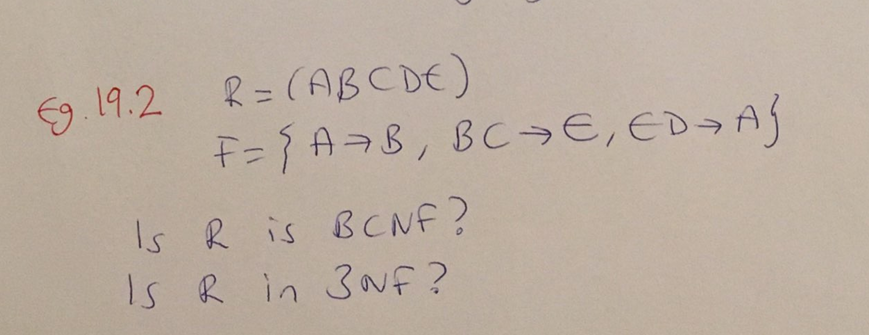 Eg. 19.2 R = (ABCDE)
F = { A → B, BC → E, ED → A}
Is R is BCNF?
Is R in 3NF?